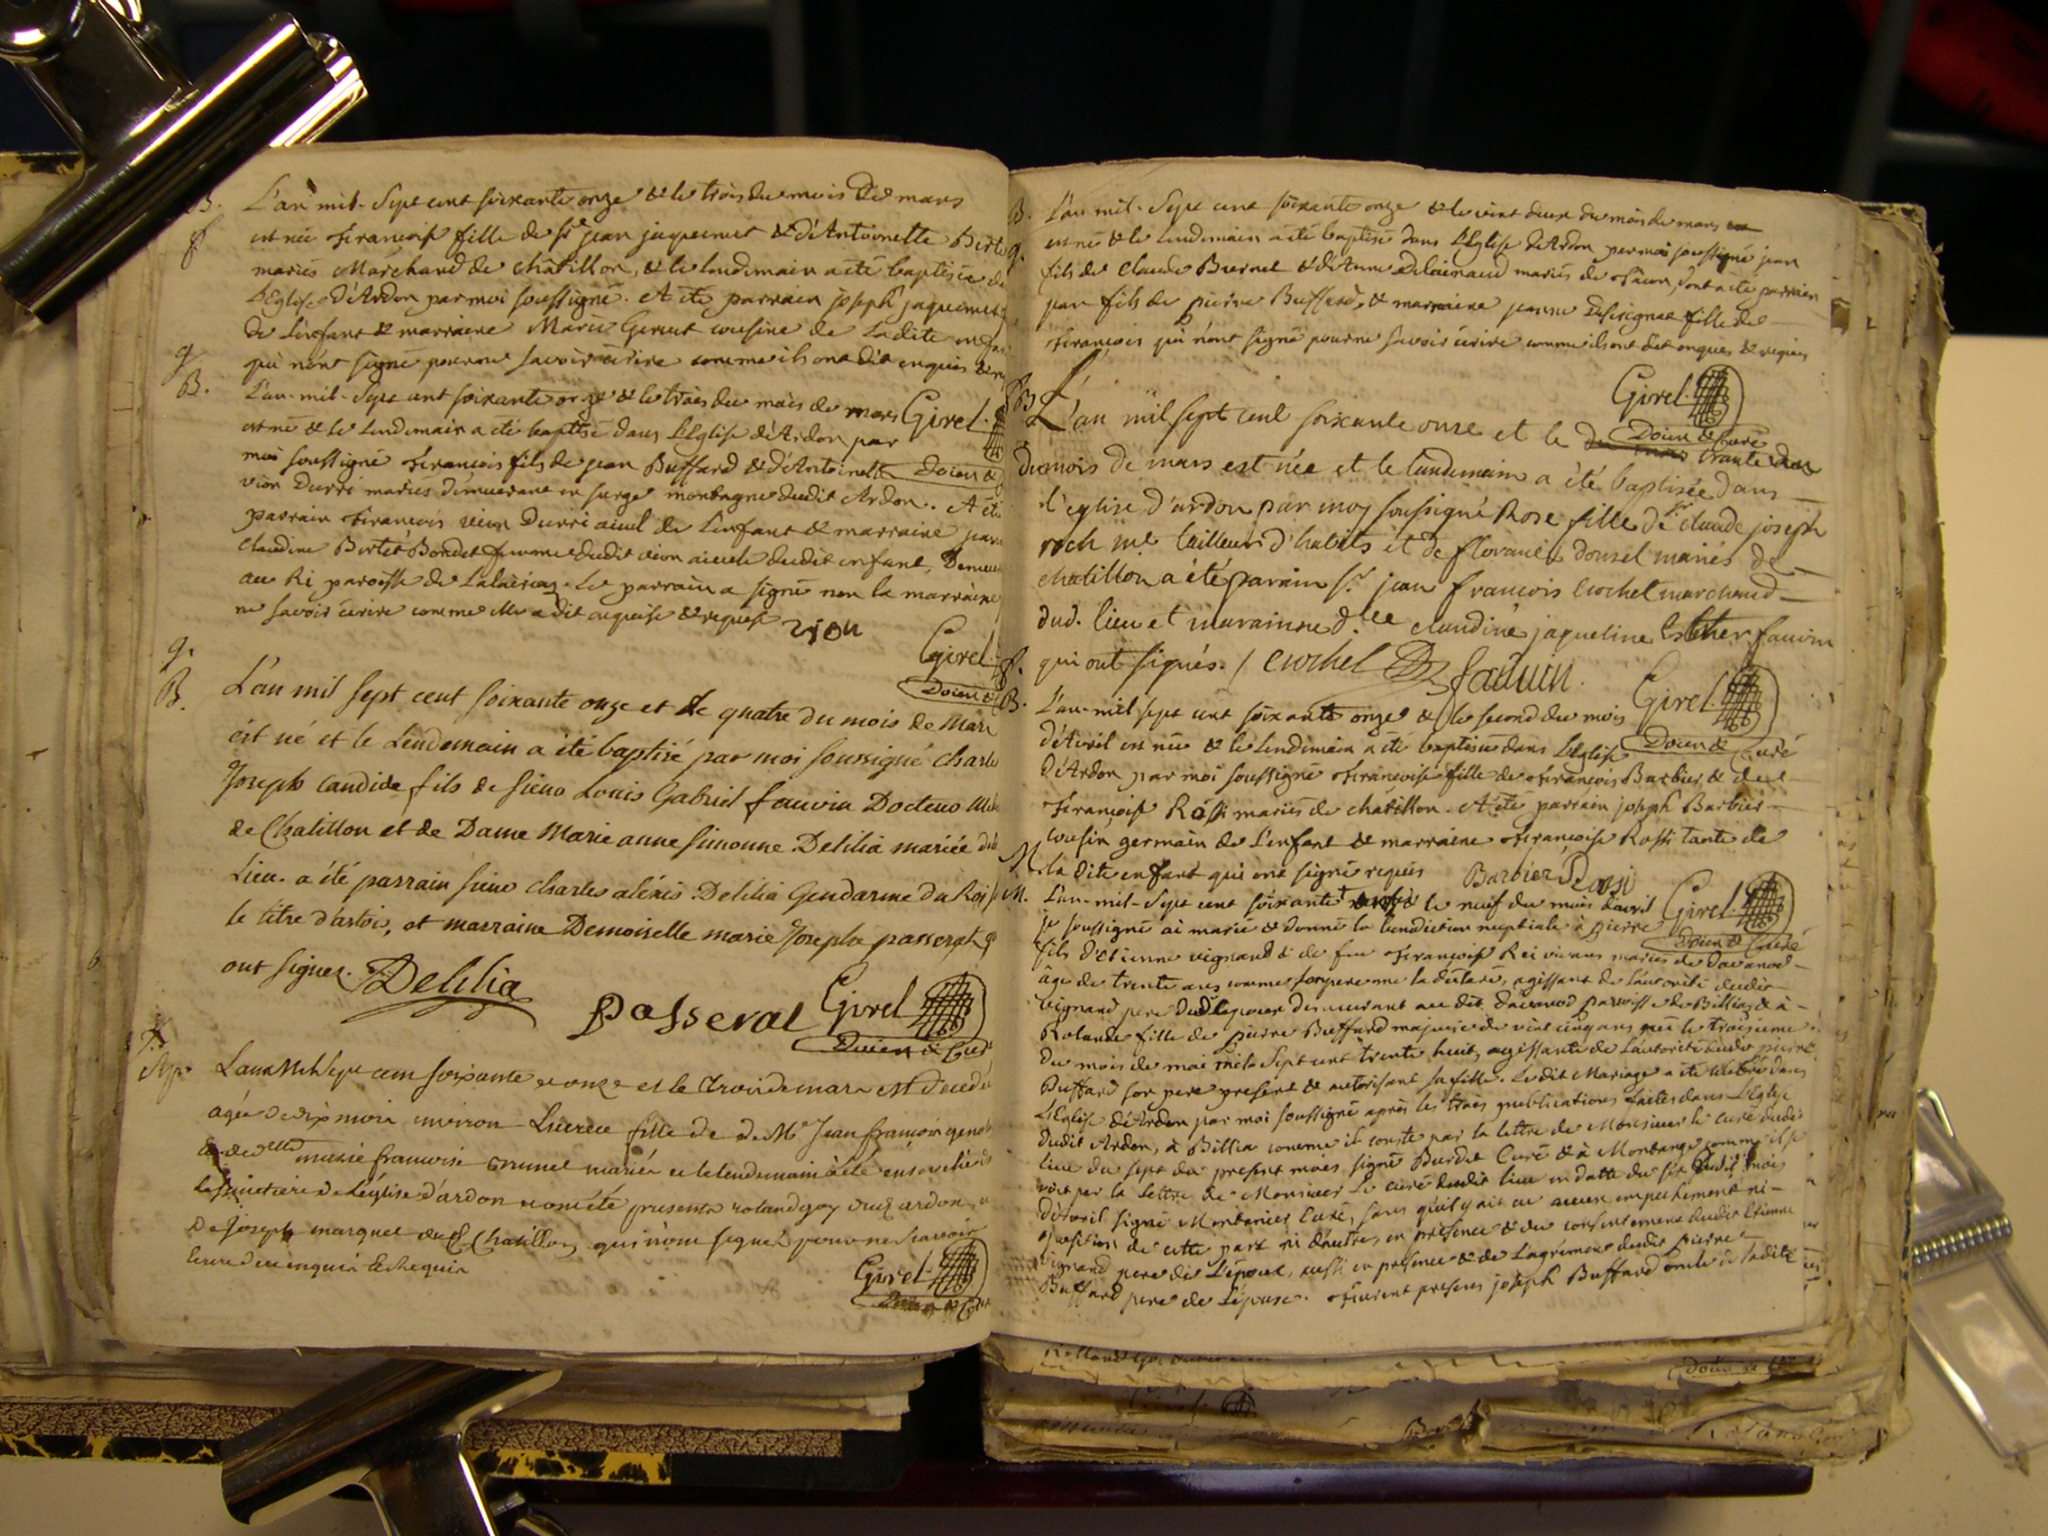 B. L'an mil-Sept cent soixante onze & le trois du mois de mars
f est née Françoise fille de Sr jean jaquemet & d'Antoinette
mariés Marchand de châtillon, & le lendemain a été baptisée
l'Eglise d'Ardon par moi soussigné. A été parrain joseph jaquemet
de l'enfant & marraine Marie cousine de Ladite
qui n'ont signé pour ne savoir écrire comme ils ont dit enquis &
g. Girel.
B. L'an-mil-Sept cent soixante onze & le trois du mois de mars
est né & le lendemain a été baptisé dans L'Eglise d'Ardon par
moi soussigné François fils de jean Buffard & d'Antoinette
vion Durri mariés demeurant en surge montagne dudit Ardon. A été
parrain François vion Durri aieul de L'enfant & marraine
claudine Bondet femme dudit vion aieule dudit enfant,
au Ri paroisse de Le parrain a signé non la marraine
ne savoir écrire comme elle a dit enquise & requise vion
Girel
Doien
g.
B. L'an mil sept cent soixante onze et le quatre du mois de Mars
est né et le Lendemain a été baptisé par moi soussigné charle
Joseph candide fils de sieur Louis Gabriel fauvin Docteur
de Chatillon et de Dame Marie anne simonne Delilia mariés
Lieu. a été parrain sieur charles aléxis Delilia Gendarme du Roi
le titre d'artois, et marraine Demoiselle marie Josephe passerat
ont signez. Delilia
Passerat Girel
Doien & Curé
L'an Mil Sept cent soixante et onze et le Trois de mars est décédée
agée de six mois environ fille de Mr Jean françois
& de delle marie françoise mariés et le lendemain a été
Le simetiere de L'église d'ardon presents roland goy d'ardon
De joseph marquet de Chatillon qui n'ont signé pour ne sçavoir
enquis & Requis
Girel
Doien & Curé
B. L'an mil-Sept cent soixante onze & le vint deux du mois de mars
g. est né & le lendemain a été baptisé dans L'Eglise d'Ardon par moi soussigné jean
fils de claude Burnet & d'Anne mariés de dont a été parrain
jean fils de pierre Buffard, & marraine jeanne fille de
François qui n'ont signé pour ne savoir écrire comme ils ont dit enquis & requis
Girel.
Doien & Curé
B L'an mil sept cent soixante onze et le trante
du mois de mars est née et le landemain a été baptisée dans
l'eglise d'ardon par moy soussigné Rose fille de Sr claude joseph
roch me tailleur d'habits et de donzel mariés de
chatillon a été parain Sr jean francois crochet marchand
dud. lieu et marainne dlle claudine jaqueline Esther fauvin
qui ont signés. / crochet fauvin. Girel.
Doien & Curé
f.
B. L'an-mil sept cent soixante onze & le second du mois
d'Avril est née & le lendemain a été baptisée dans L'Eglise
d'Ardon par moi soussigné Françoise fille de François Barbier & de
Françoise Rossi mariés de châtillon. A été parrain joseph Barbier
cousin germain de L'enfant & marraine Françoise Rossi tante de
la dite enfant qui ont signé requis Barbier Rossi Girel.
Doien & Curé
M. L'an-mil-Sept cent soixante & le neuf du mois d'avril
je soussigné ai marié & donné la benediction nuptiale à pierre
fils d'Etienne vignand & de feu Françoise Rei vivans mariés de davanod
âgé de trente ans comme son pere me la déclaré, agissant de L'autorité dudit
vignand pere dud. L'epoux demeurant au dit davanod paroisse de Billiaz & à
Rolande fille de pierre Buffard majeure de vint cinq ans née le troisieme
du mois de mai mil Sept cent trente huit, agissante de L'autorité dudit pierre
Buffard son pere present & autorisant sa fille. Le dit Mariage a été célébré dans
L'Eglise d'Ardon par moi soussigné après les trois publications faites dans L'Eglise
dudit Ardon, à Billia comme il conste par la lettre de Monsieur le curé dudit
lieu du sept du present mois, signé Burdet Curé & à Montange comme il se
voit par la Lettre de Monsieur Le curé dudit lieu en datte du six dudit mois
d'avril signé Montanier Curé, sans qu'il y ait eu aucun empechement ni
oposition de cette part ni d'autres, en présence & du consentement dudit Etienne
vignand pere de L'époux, aussi en présence & de L'agrément dudit pierre
Buffard pere de L'épouse. Furent presens joseph Buffard oncle de ladite